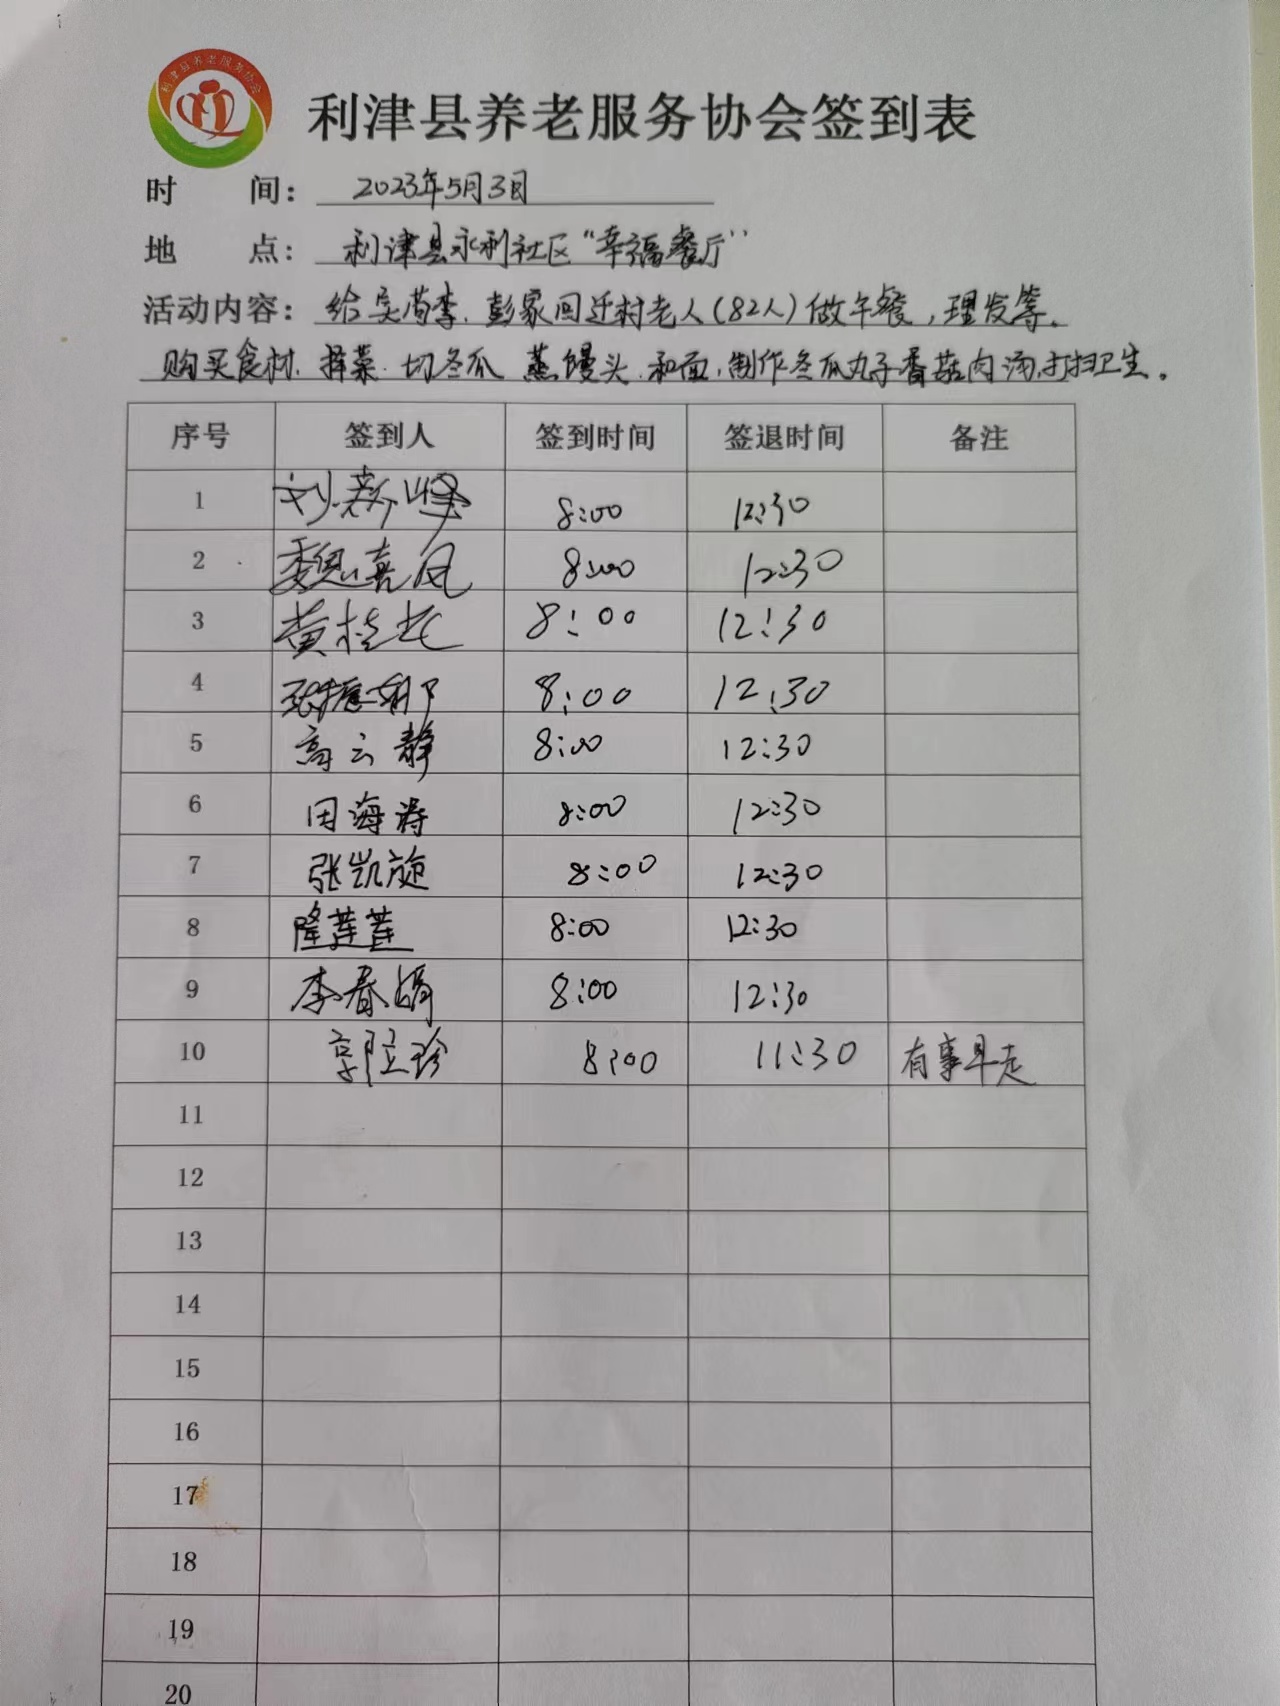 利津县养老服务协会
利津县养老服务协会签到表
时 间: 2023年5月3日
地 点: 利津县永利社区“幸福餐厅”
活动内容: 给 李、彭家回迁村老人(82人)做午餐,理发等。
购买食材、择菜、切冬瓜 蒸馒头、和面,制作冬瓜丸子香菇肉汤,打扫卫生。
序号 签到人 签到时间 签退时间 备注
1 8:00 12:30
2 8:00 12:30
3 黄桂花 8:00 12:30
4 8:00 12:30
5 高云静 8:00 12:30
6 田海涛 8:00 12:30
7 张凯旋 8:00 12:30
8 隆莲莲 8:00 12:30
9 李春娟 8:00 12:30
10 郭立珍 8:00 11:30 有事早走
11
12
13
14
15
16
17
18
19
20